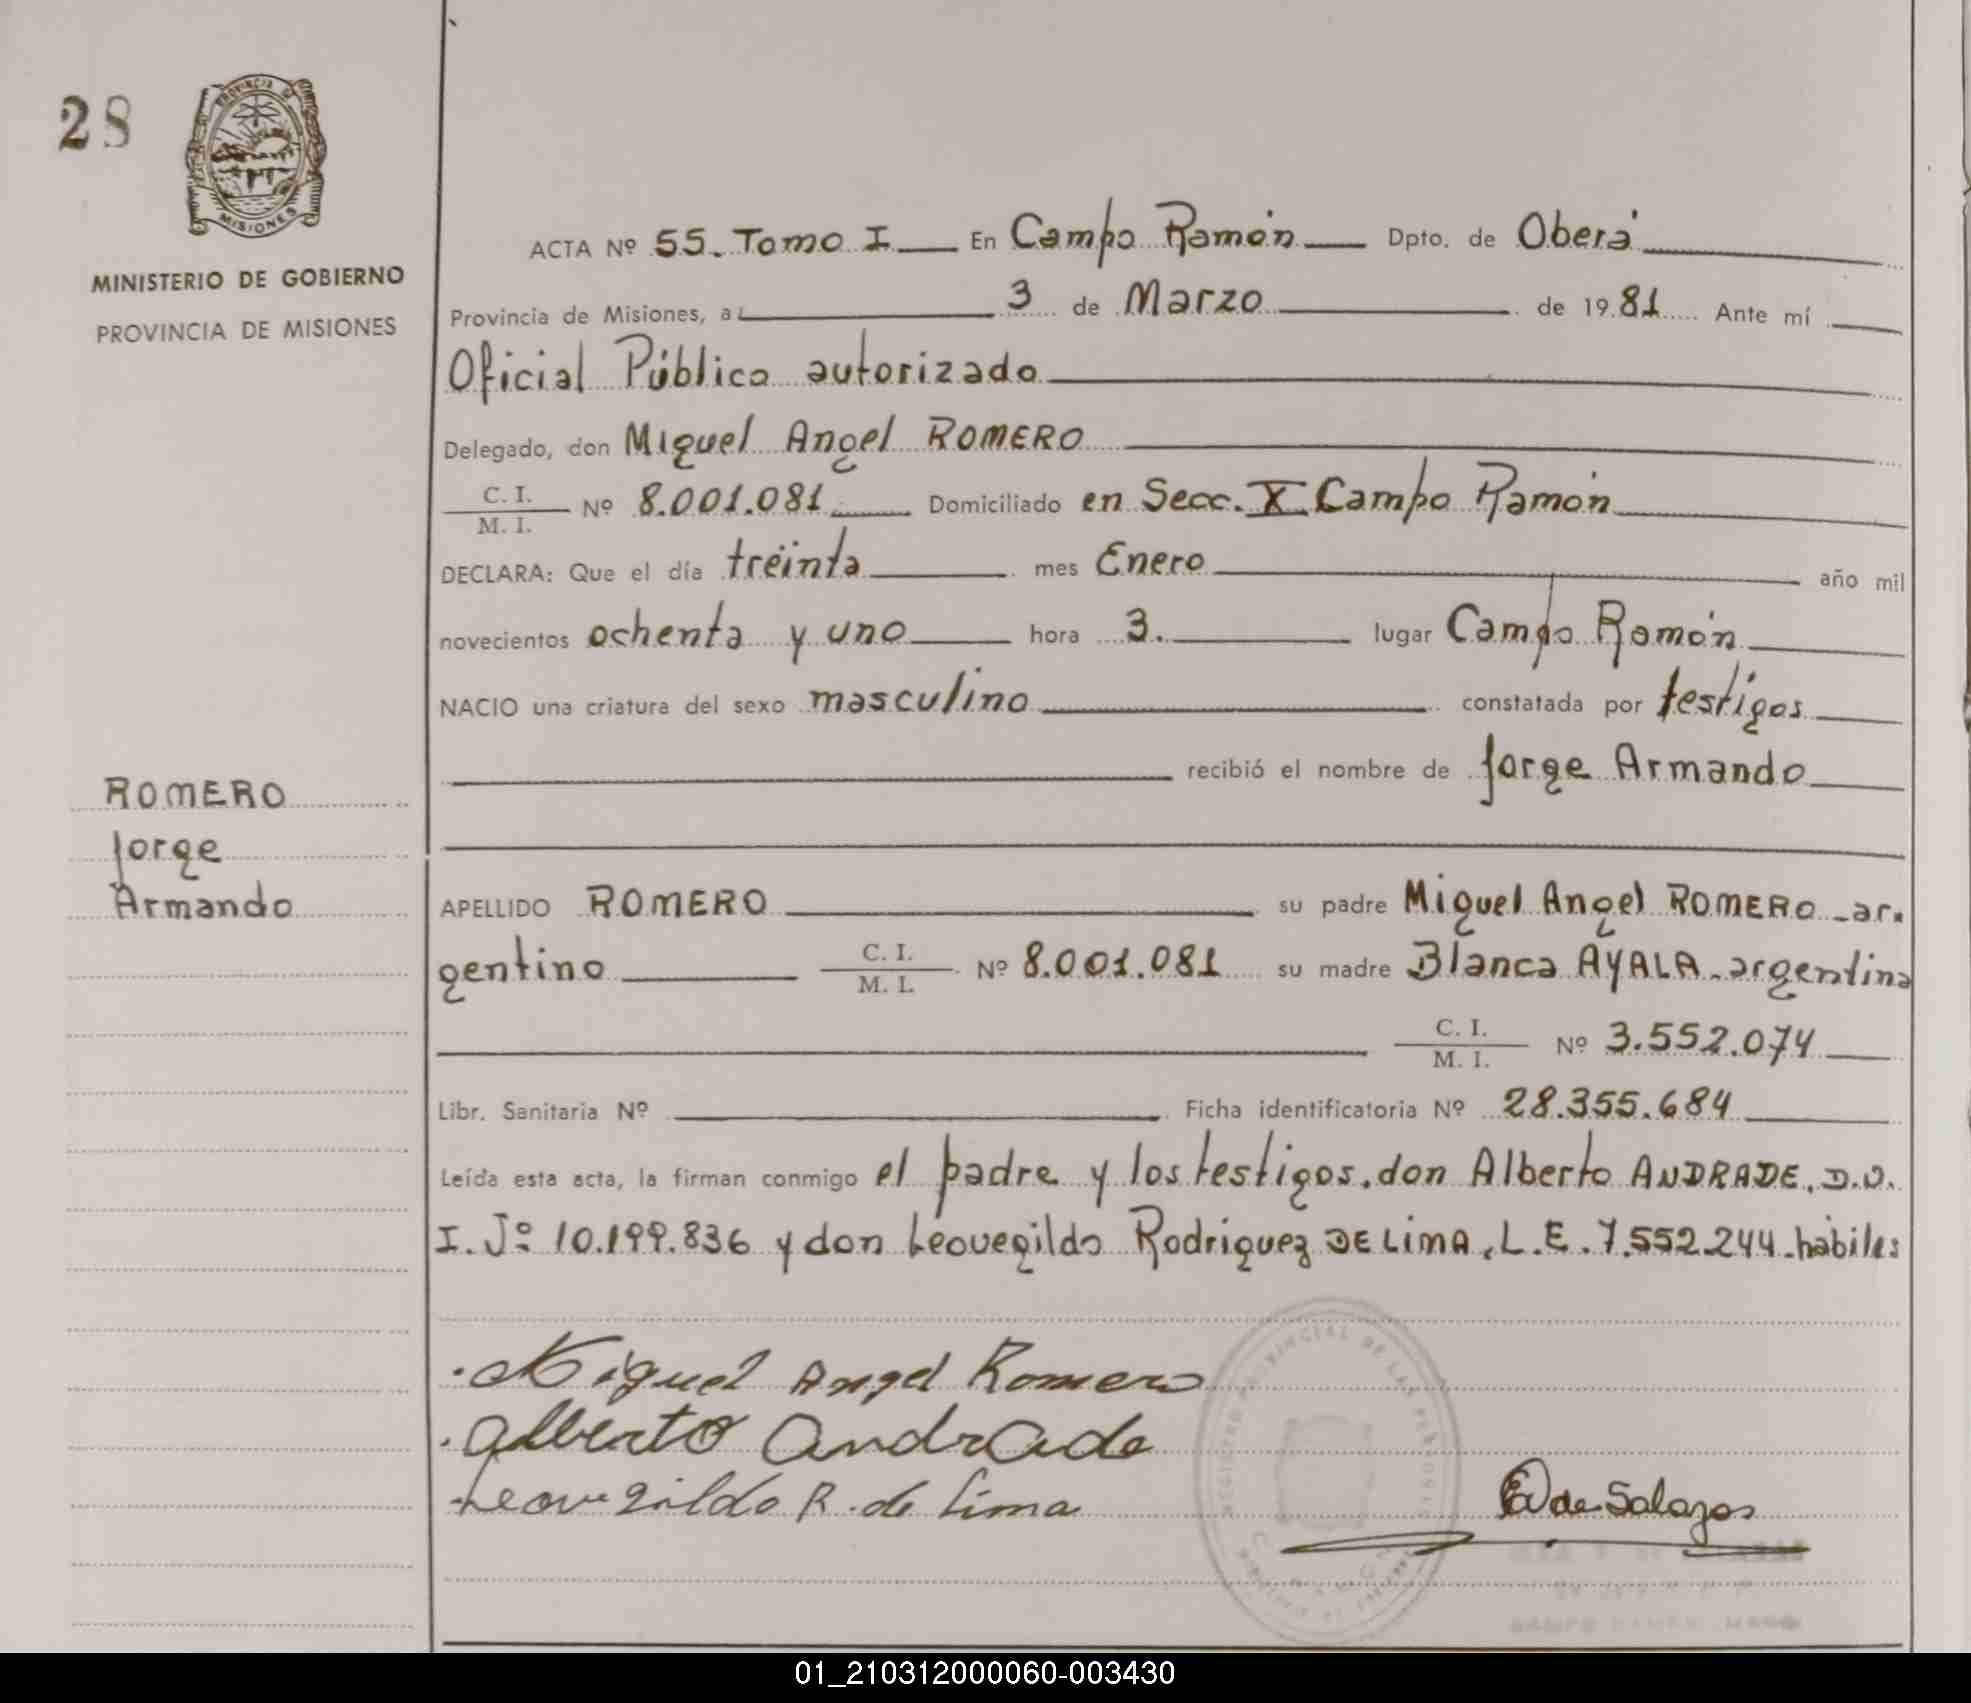 28
PROVINCIA DE
MISIONES
MINISTERIO DE GOBIERNO
PROVINCIA DE MISIONES
ACTA Nº 55. Tomo I En Campo Ramón Dpto. de Oberá
Provincia de Misiones, a 3 de Marzo de 1981 Ante mí
Oficial Público autorizado
Delegado, don Miguel Angel ROMERO
C. I.
M. I. Nº 8.001.081 Domiciliado en Secc. X Campo Ramón
DECLARA: Que el día treinta mes Enero año mil
novecientos ochenta y uno hora 3. lugar Campo Ramón
NACIO una criatura del sexo masculino constatada por testigos
recibió el nombre de Jorge Armando
ROMERO
Jorge
Armando
APELLIDO ROMERO su padre Miguel Angel ROMERO - ar-
gentino C. I. M. I. Nº 8.001.081 su madre Blanca AYALA - argentina
C. I. M. I. Nº 3.552.074
Libr. Sanitaria Nº Ficha identificatoria Nº 28.355.684
Leída esta acta, la firman conmigo el padre y los testigos, don Alberto ANDRADE, D.N.
I. Nº 10.199.836 y don Leovegildo Rodriguez DE LIMA, L.E. 7.552.244 - hábiles
Miguel Angel Romero
Alberto Andrade
Leovegildo R. de Lima
REGISTRO PROVINCIAL DE LAS PERSONAS
de Salazar
01_210312000060-003430